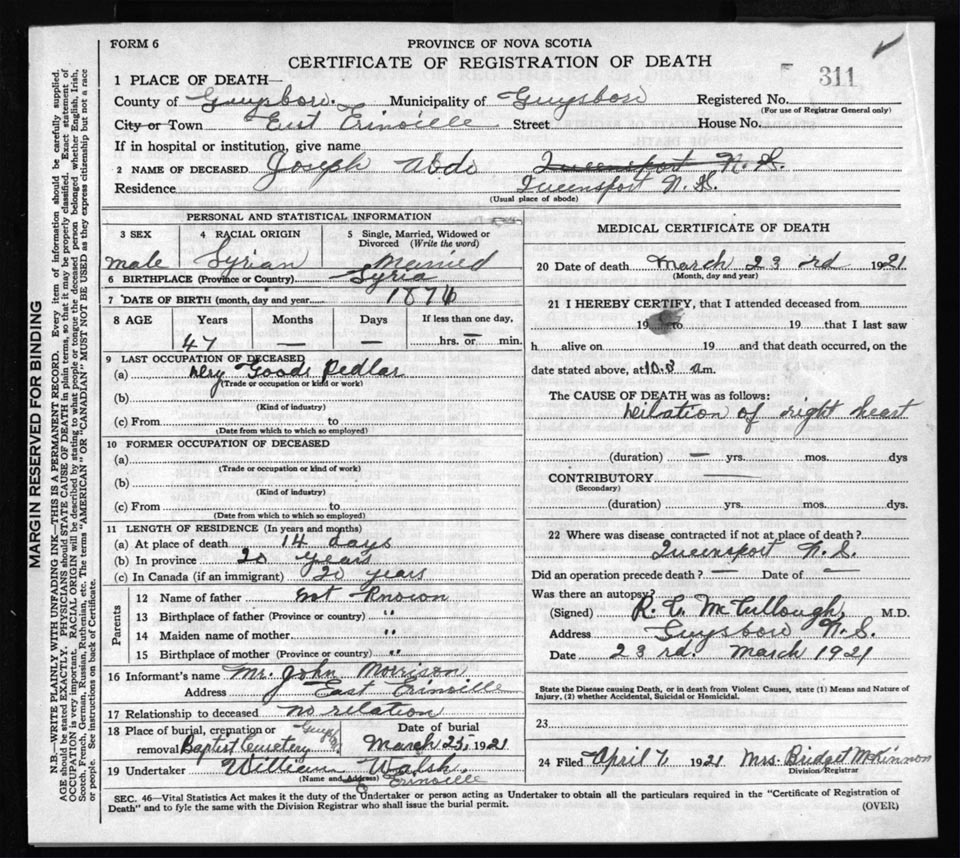 FORM 6
PROVINCE OF NOVA SCOTIA
CERTIFICATE OF REGISTRATION OF DEATH
311
1 PLACE OF DEATH—
County of Guysboro. Municipality of Guysboro Registered No.
(For use of Registrar General only)
City or Town East Erinville Street House No.
If in hospital or institution, give name
2 NAME OF DECEASED Joseph Abdo Queensport N. S.
Residence Queensport N. S.
(Usual place of abode)
PERSONAL AND STATISTICAL INFORMATION
3 SEX 4 RACIAL ORIGIN 5 Single, Married, Widowed or
Divorced (Write the word)
male Syrian Married
6 BIRTHPLACE (Province or Country) Syria
7 DATE OF BIRTH (month, day and year) 1874
8 AGE Years Months Days If less than one day,
47 — — hrs. or min.
9 LAST OCCUPATION OF DECEASED
(a) Dry Goods Pedlar
(Trade or occupation or kind or work)
(b)
(Kind of industry)
(c) From to
(Date from which to which so employed)
10 FORMER OCCUPATION OF DECEASED
(a)
(Trade or occupation or kind of work)
(b)
(Kind of industry)
(c) From to
(Date from which to which so employed)
11 LENGTH OF RESIDENCE (In years and months)
(a) At place of death 14 days
(b) In province 20 years
(c) In Canada (if an immigrant) 20 years
Parents
12 Name of father Not Known
13 Birthplace of father (Province or country) "
14 Maiden name of mother "
15 Birthplace of mother (Province or country) "
16 Informant's name Mr. John Morrison
Address East Erinville
17 Relationship to deceased no relation
18 Place of burial, cremation or Date of burial
removal Baptist Cemetery March 25, 1921
19 Undertaker William Walsh
(Name and Address) Erinville
MEDICAL CERTIFICATE OF DEATH
20 Date of death March 23 rd 1921
(Month, day and year)
21 I HEREBY CERTIFY, that I attended deceased from
19 to 19 that I last saw
h alive on 19 and that death occurred, on the
date stated above, at am.
The CAUSE OF DEATH was as follows:
Dilation of right heart
(duration) — yrs. mos. dys
CONTRIBUTORY
(Secondary)
(duration) yrs. mos. dys.
22 Where was disease contracted if not at place of death?
Queensport N. S.
Did an operation precede death? — Date of —
Was there an autopsy?
(Signed) McCullough, M.D.
Address Guysboro N. S.
Date 23 rd. March 1921
State the Disease causing Death, or in death from Violent Causes, state (1) Means and Nature of
Injury, (2) whether Accidental, Suicidal or Homicidal.
23
24 Filed April 7, 1921 Mrs. Bridget McKinnon
Division Registrar
SEC. 46—Vital Statistics Act makes it the duty of the Undertaker or person acting as Undertaker to obtain all the particulars required in the "Certificate of Registration of
Death" and to fyle the same with the Division Registrar who shall issue the burial permit.
(OVER)
MARGIN RESERVED FOR BINDING
N.B.—WRITE PLAINLY WITH UNFADING INK—THIS IS A PERMANENT RECORD. Every item of information should be carefully supplied.
AGE should be stated EXACTLY. PHYSICIANS should STATE CAUSE OF DEATH in plain terms, so that it may be properly classified. Exact statement of
OCCUPATION is very important. RACIAL ORIGIN will be described by stating to what people or tongue the deceased person belonged whether English, Irish,
Scotch, French, German, Russian, Ruthenian, etc. The terms "AMERICAN" OR "CANADIAN" MUST NOT BE USED as they express citizenship but not a race
or people. See instructions on back of Certificate.